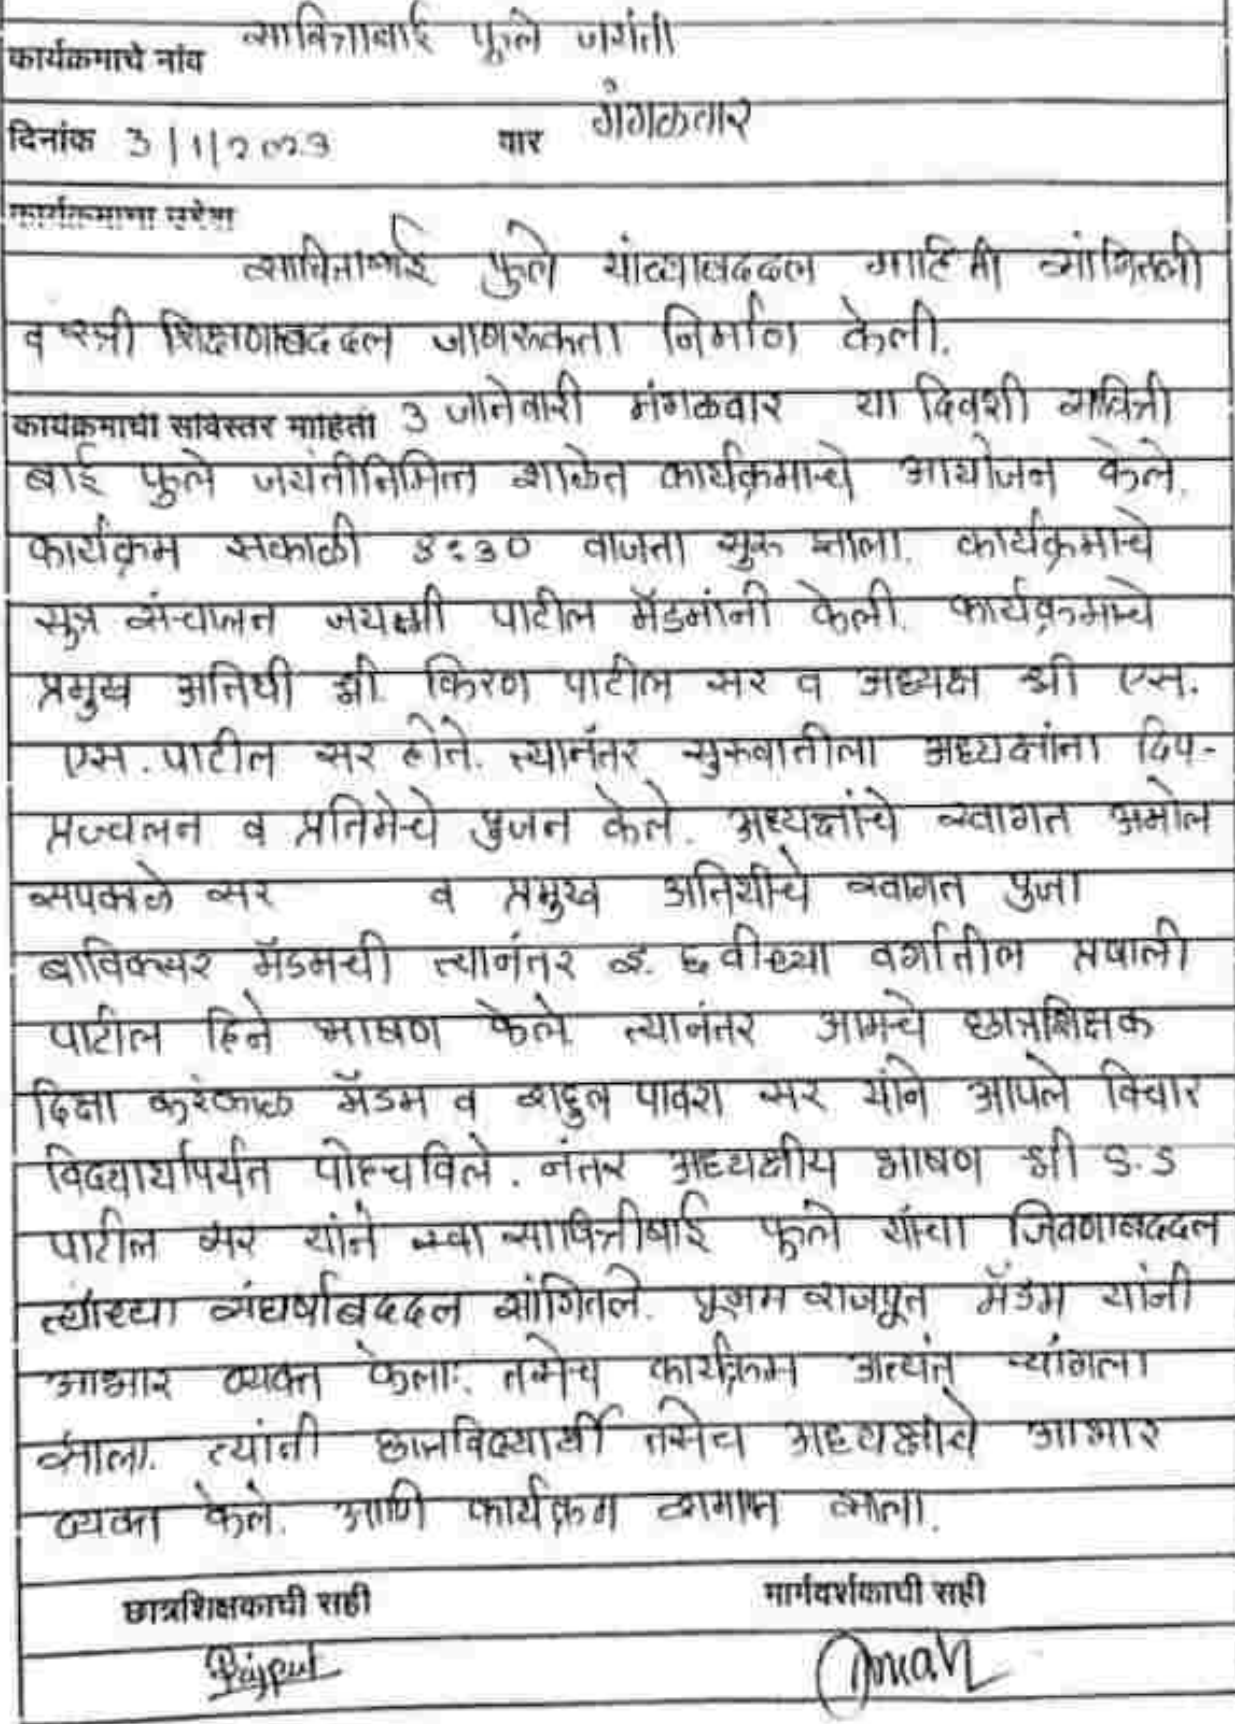 कार्यक्रमाचे नांव सावित्राबाई फुले जयंती
दिनांक 3/1/2023 वार मंगळवार
कार्यक्रमाचा उद्देश
सावित्राबाई फुले यांच्याबददल माहिती सांगितली
व स्त्री शिक्षणाबददल जागरुकता निर्माण केली.
कार्यक्रमाची सविस्तर माहिती 3 जानेवारी मंगळवार या दिवशी सावित्री
बाई फुले जयंतीनिमित्त शाळेत कार्यक्रमाचे आयोजन केले.
कार्यक्रम सकाळी 8:30 वाजता सुरु झाला. कार्यक्रमाचे
सुत्र संचालन जयश्री पाटील मॅडमांनी केली. कार्यक्रमाचे
प्रमुख अतिथी श्री. किरण पाटील सर व अध्यक्ष श्री एस.
एस. पाटील सर होते. त्यानंतर सुरुवातीला अध्यक्षांना दिप-
प्रज्वलन व प्रतिमेचे पुजन केले. अध्यक्षांचे स्वागत अमोल
सपकाळे सर व प्रमुख अतिथीचे स्वागत पुजा
बाविस्कर मॅडमची त्यानंतर इ. ६ वीच्या वर्गातील
पाटील हिने भाषण केले त्यानंतर आमचे छात्रशिक्षक
दिक्षा करंकाळ मॅडम व राहुल पावरा सर यांने आपले विचार
विद्यार्थापर्यंत पोहचविले. नंतर अध्यक्षीय भाषण श्री S.S
पाटील सर यांने स्वा सावित्रीबाई फुले यांचा जिवणाबददल
त्यांच्या संघर्षाबददल सांगितले. पूनम राजपूत मॅडम यांनी
आभार व्यक्त केला. तसेच कार्यक्रम अत्यंत चांगला
झाला. त्यांनी छात्रविद्यार्थी तसेच अध्यक्षांचे आभार
व्यक्त केले. आणि कार्यक्रम समाप्त झाला.
छात्रशिक्षकाची सही मार्गदर्शकाची सही
Rajput